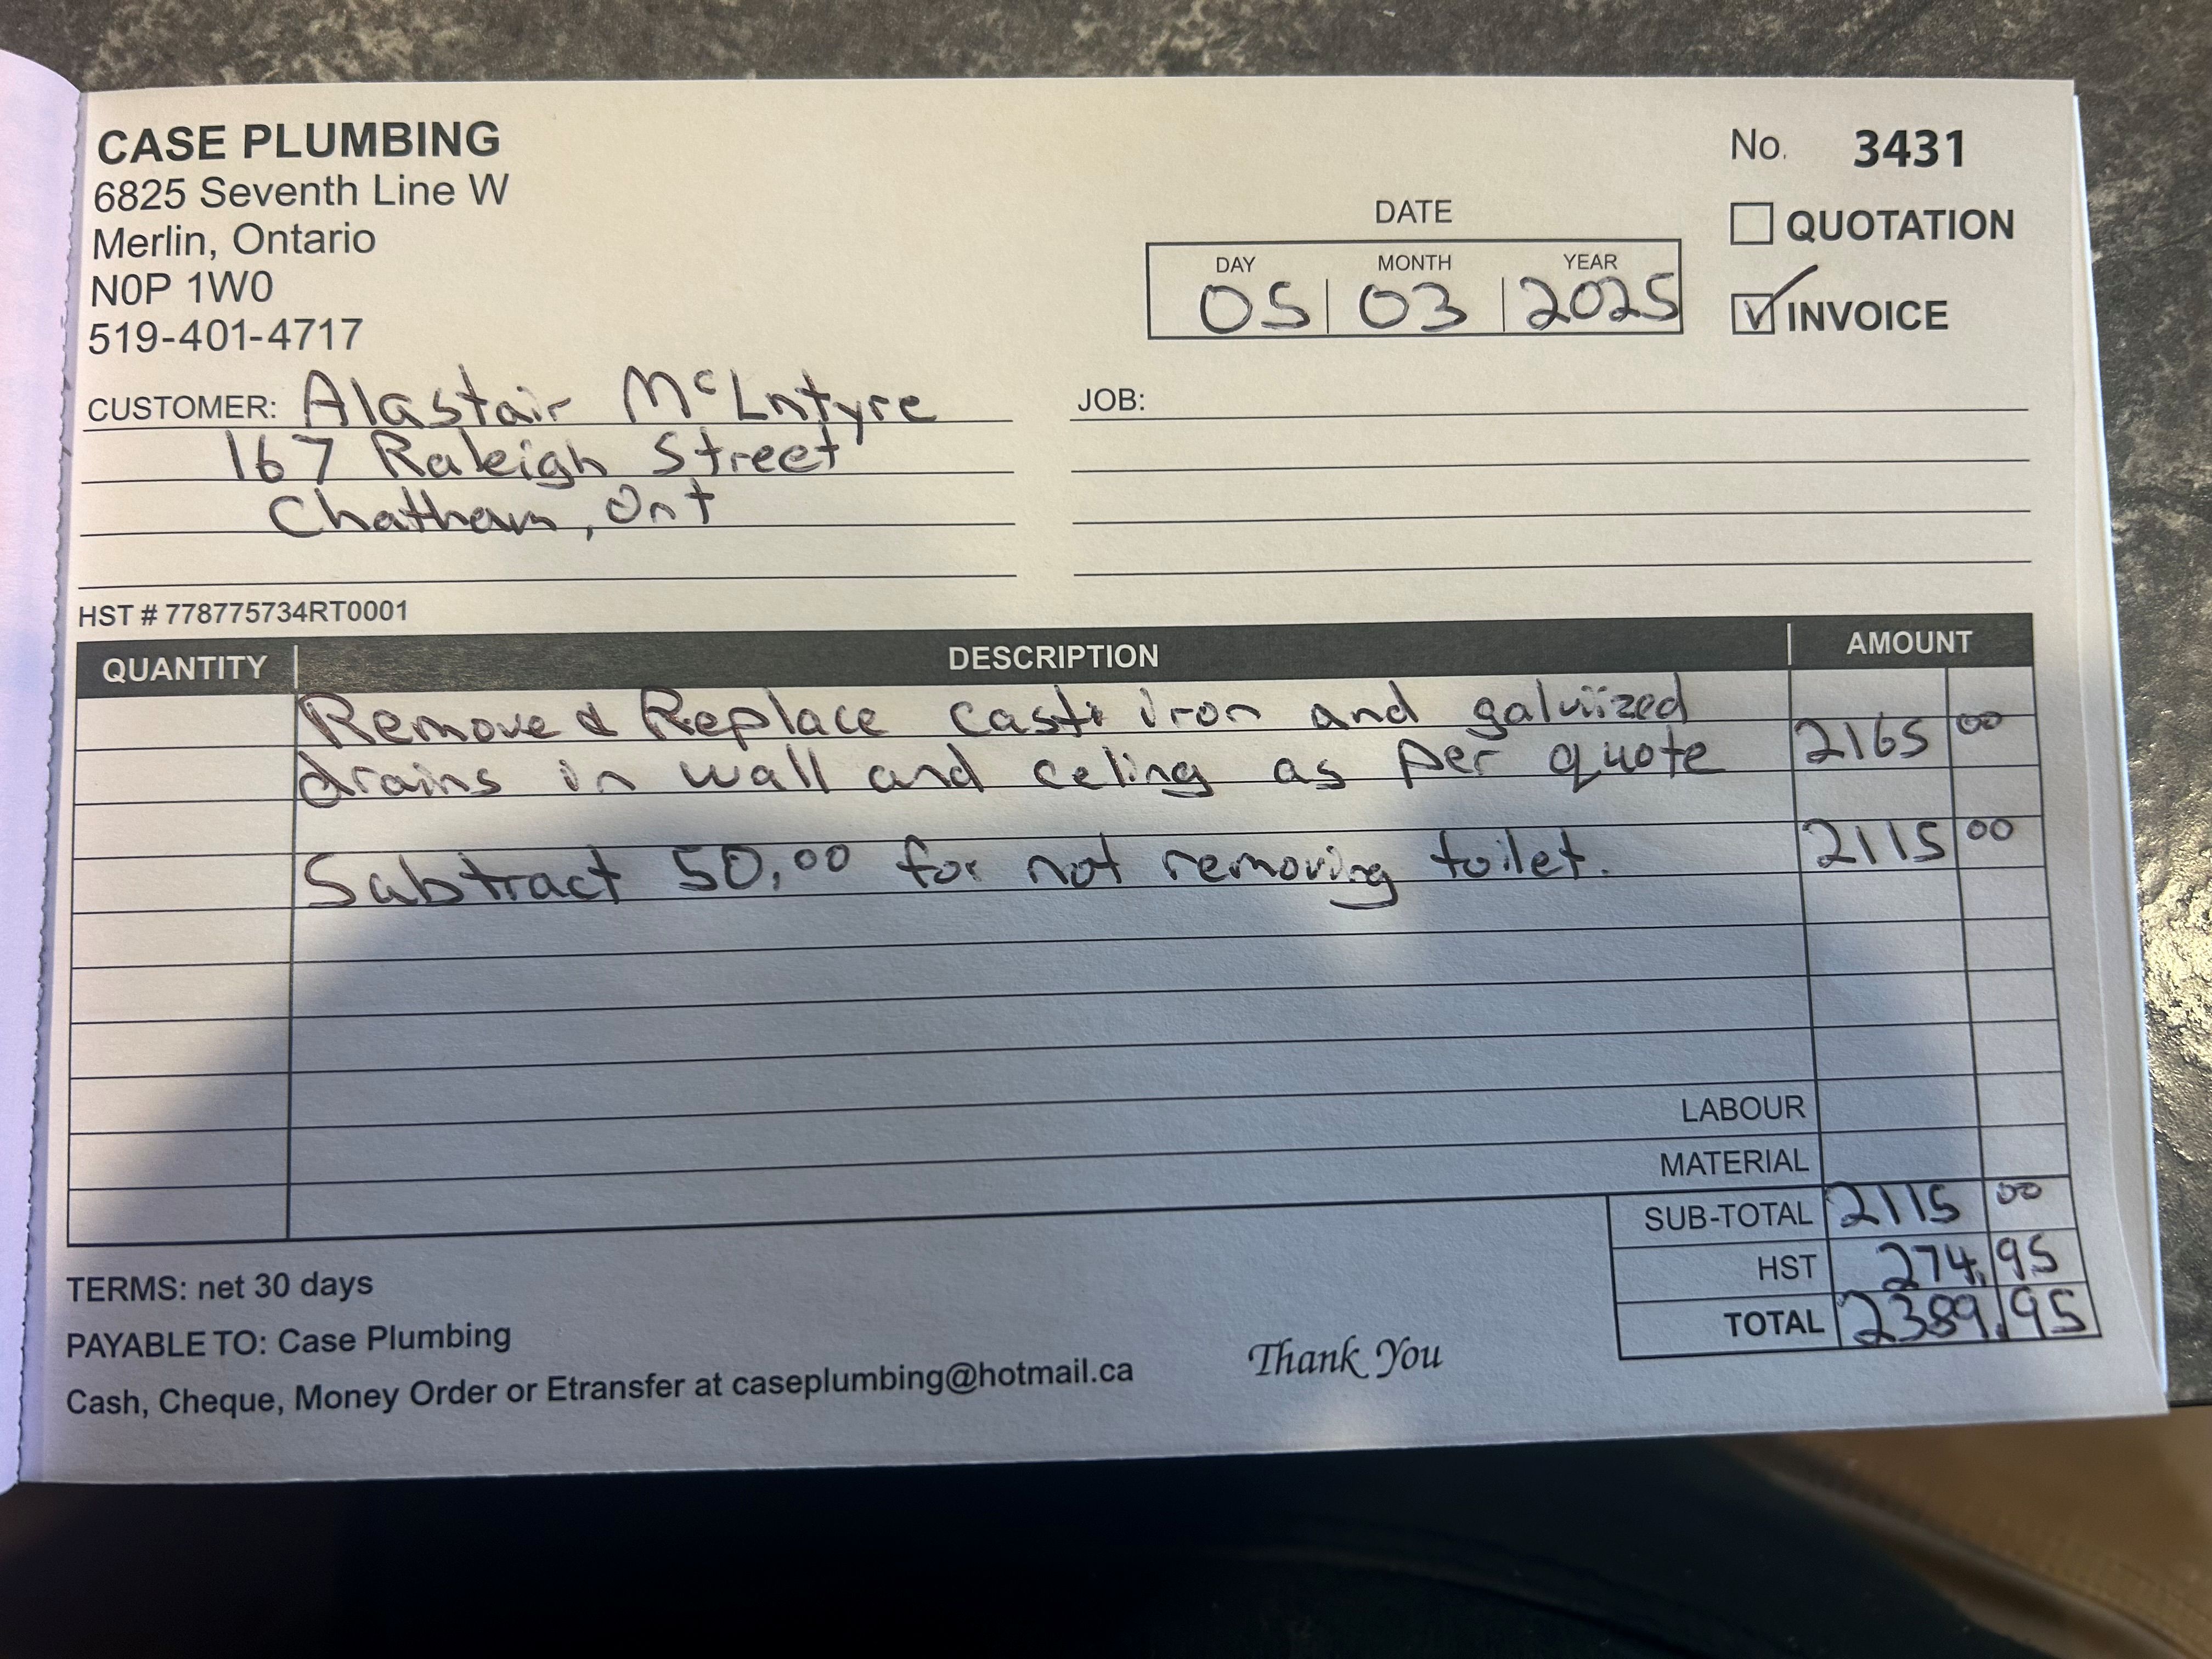 CASE PLUMBING
6825 Seventh Line W
Merlin, Ontario
N0P 1W0
519-401-4717
No. 3431
QUOTATION
INVOICE
DATE
DAY MONTH YEAR
05 03 2025
CUSTOMER: Alastair McIntyre
167 Raleigh Street
Chatham, Ont
JOB:
HST # 778775734RT0001
QUANTITY DESCRIPTION AMOUNT
Remove & Replace cast iron and galvized
drains in wall and celing as per quote 2165 00
Subtract 50.00 for not removing toilet. 2115 00
LABOUR
MATERIAL
SUB-TOTAL 2115 00
HST 274.95
TOTAL 2389.95
TERMS: net 30 days
PAYABLE TO: Case Plumbing
Cash, Cheque, Money Order or Etransfer at caseplumbing@hotmail.ca
Thank You